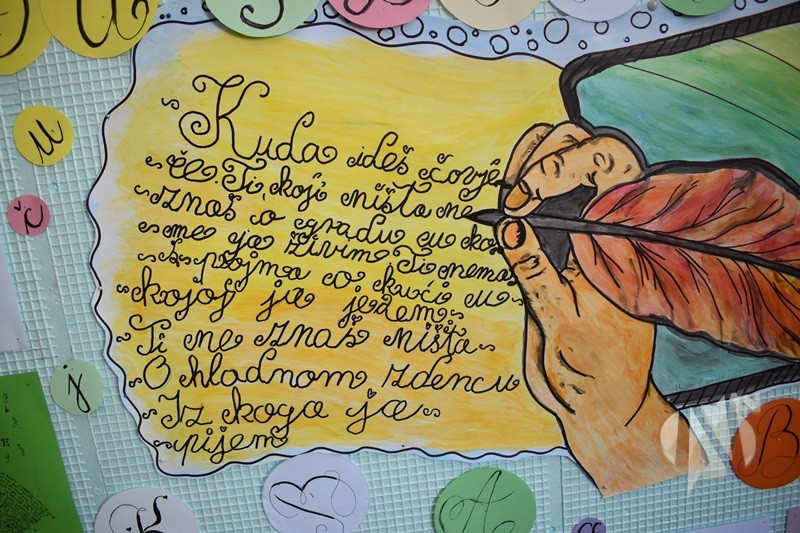 Kuda ideš čovje
če. Ti, koji ništa ne
znaš o gradu u ko
me ja živim Ti nema
š pojma o kući u
kojoj ja jedem
Ti ne znaš ništa
O hladnom zdencu
Iz koga ja
pijem
u
č
j
K
A
B